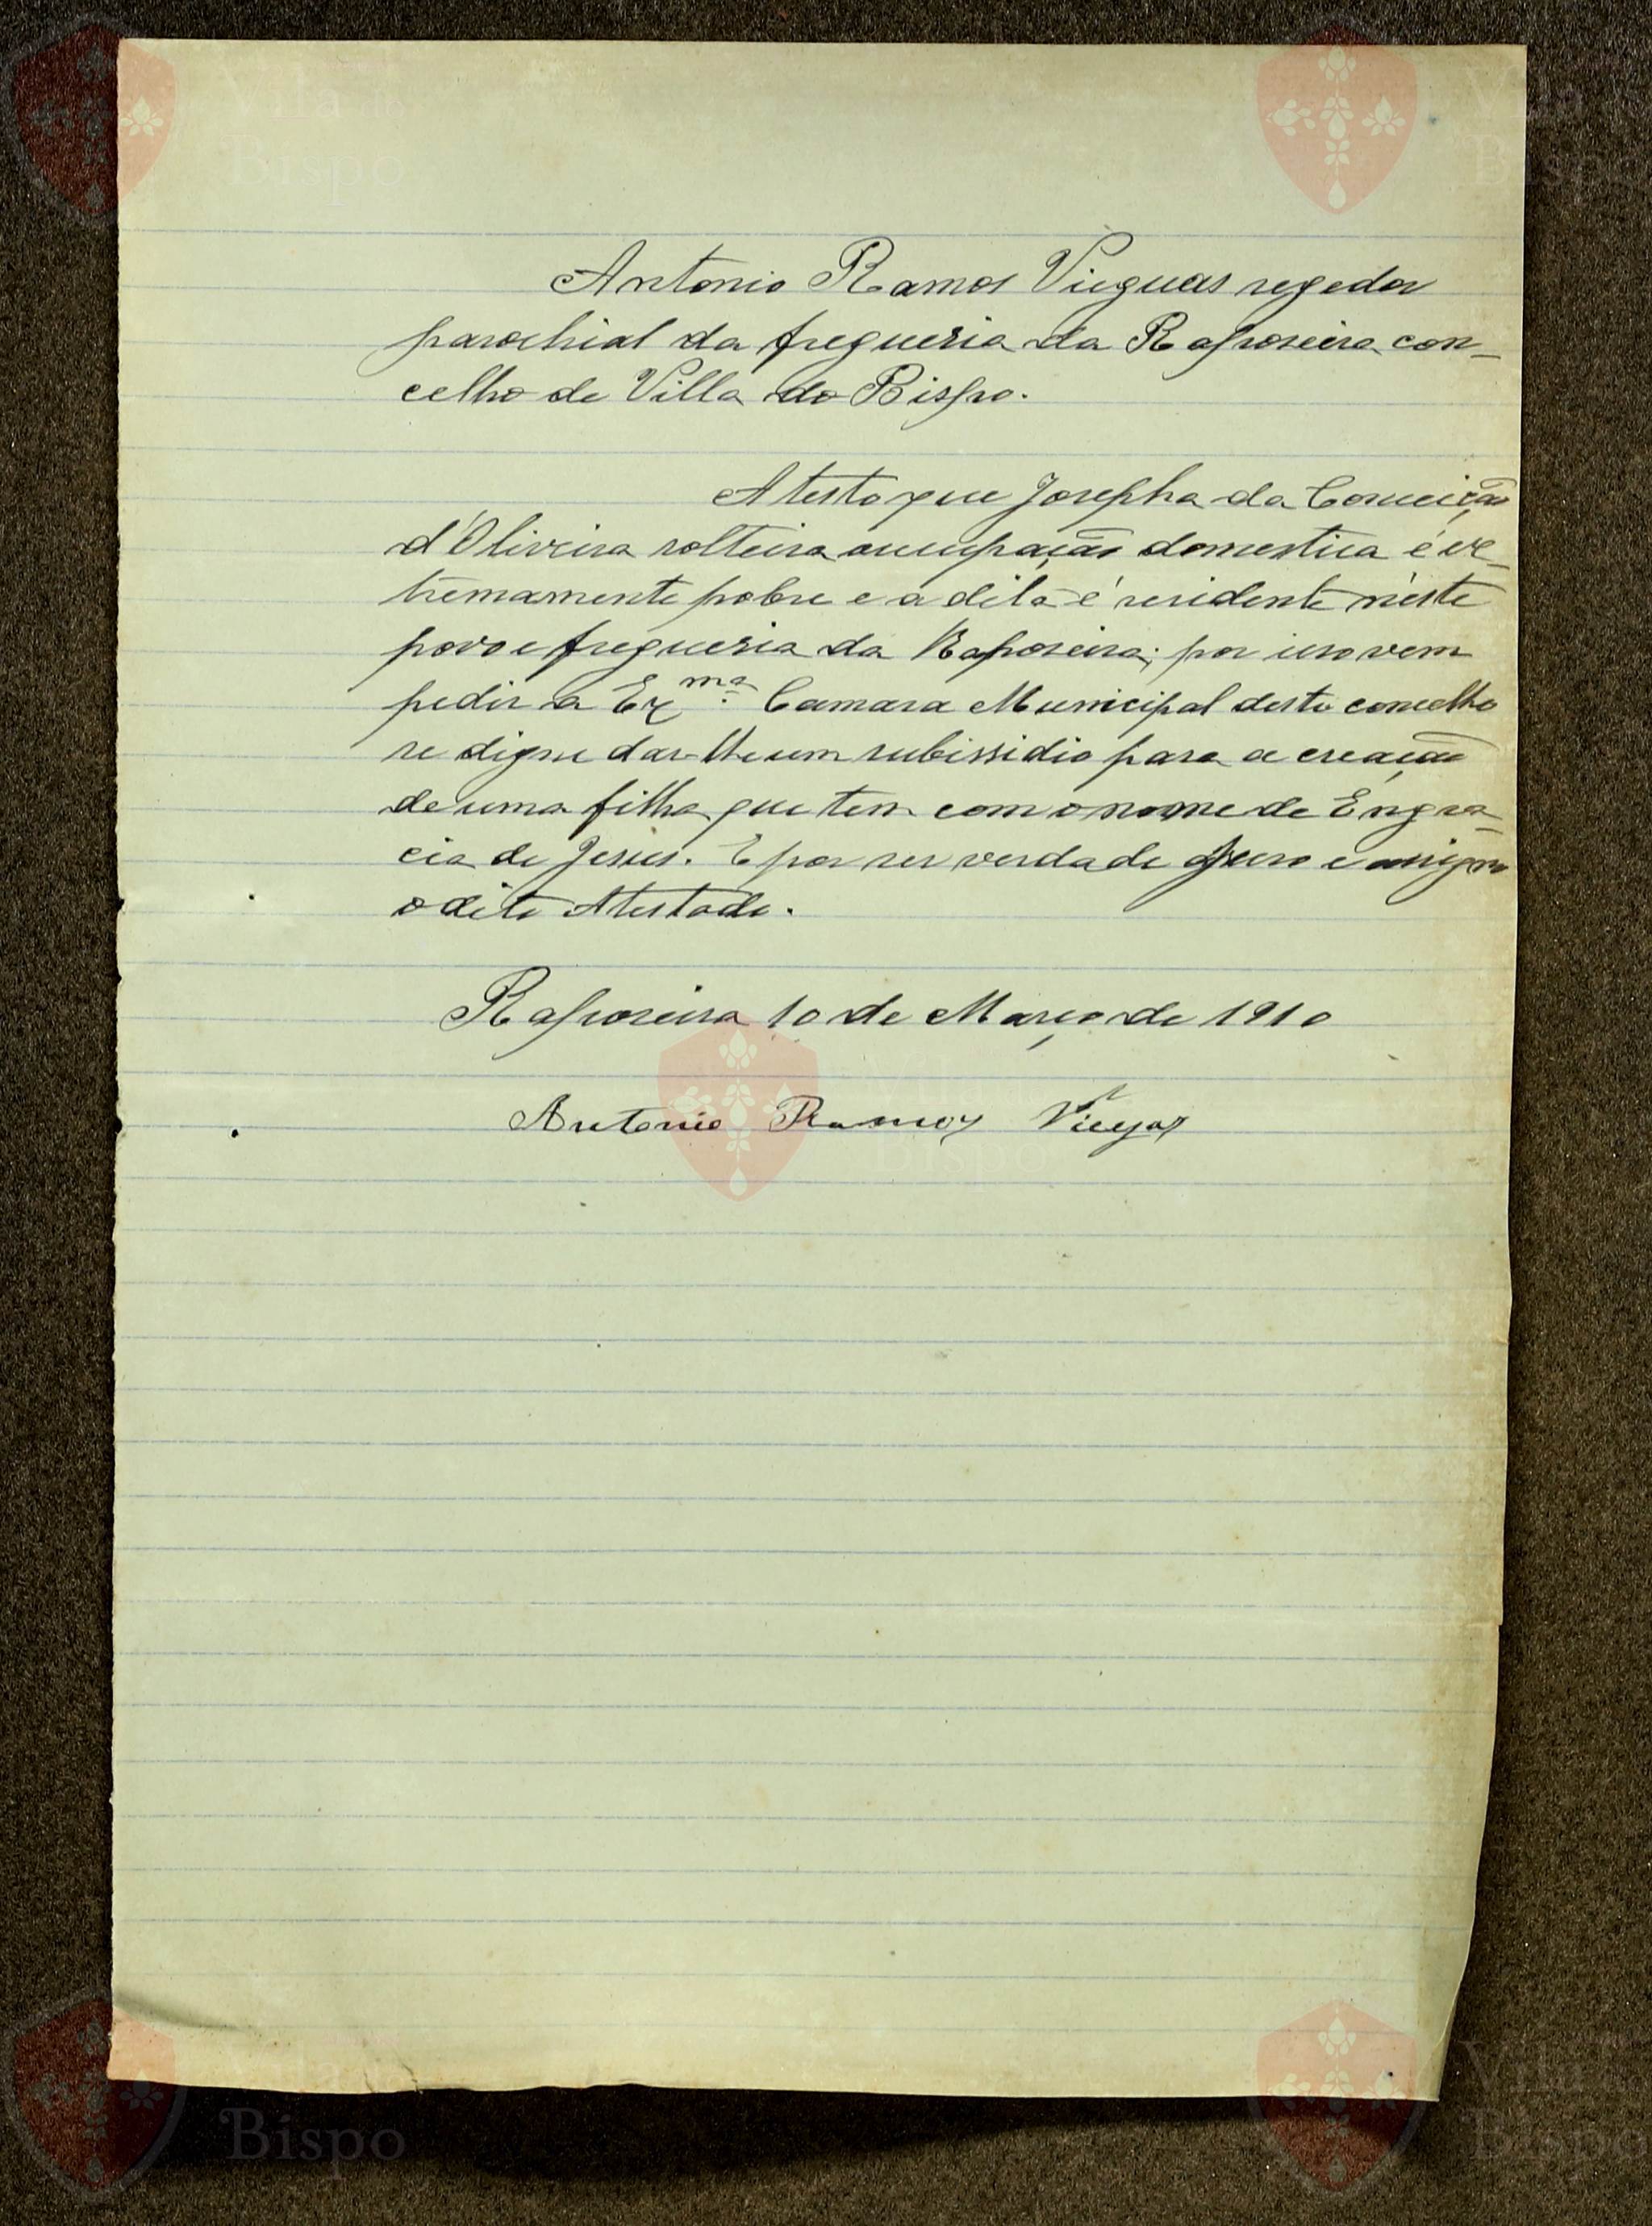 Antonio Ramos Vieguas regedor
parochial da fregueria da Raposeira con-
celho de Villa do Bispo.
Atesto que Josepha da Conceição
d'Oliveira solteira occupação domestica é ex-
tremamente pobre e a dita é residente nèste
povo e fregueria da Raposeira; por isso vem
pedir a Ex.ma Camara Municipal deste concelho
se digne dar-lhe um subissidio para a creação
de uma filha que tem com o nome de Engra-
cia de Jesus. E por ser verdade juro e assigno
o dito Atestado.
Raposeira 10 de Março de 1910
Antonio Ramos Viegas
Vila do
Bispo